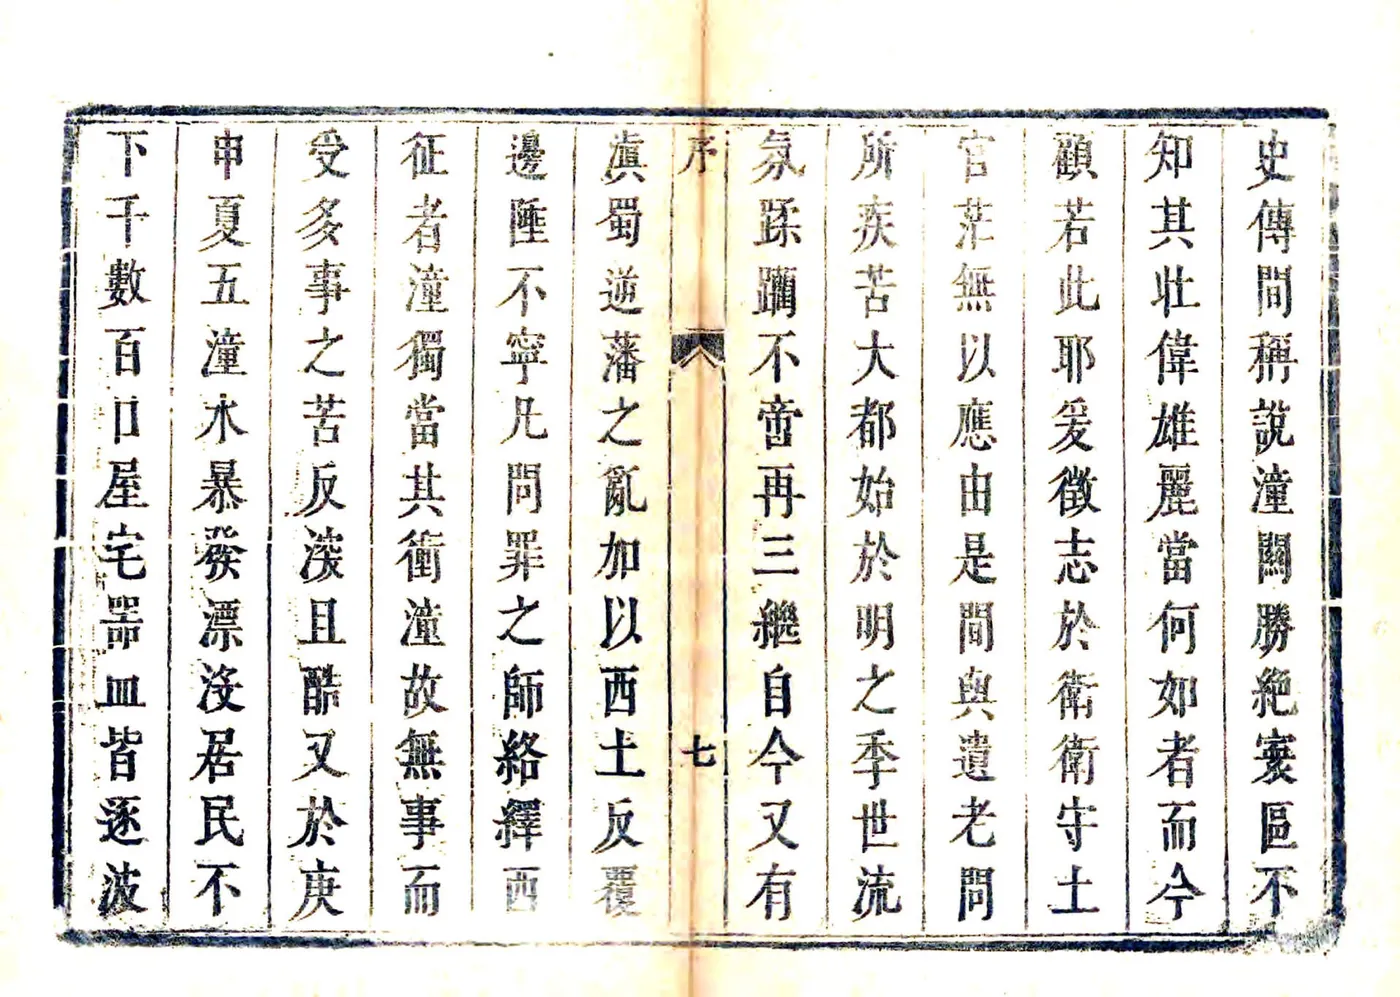 史傳間稱說潼關勝絶寰區不
知其壯偉雄麗當何如者而今
顧若此耶爰徵志於衛衛守土
官茫無以應由是間與遺老問
所疾苦大都始於明之季世流
氛蹂躪不啻再三繼自今又有
序
七
滇蜀逆藩之亂加以西土反覆
邊陲不寧凡問罪之師絡繹西
征者潼獨當其衝潼故無事而
受多事之苦反淩且酷又於庚
申夏五潼水暴發漂沒居民不
下千數百口屋宅器皿皆逐波